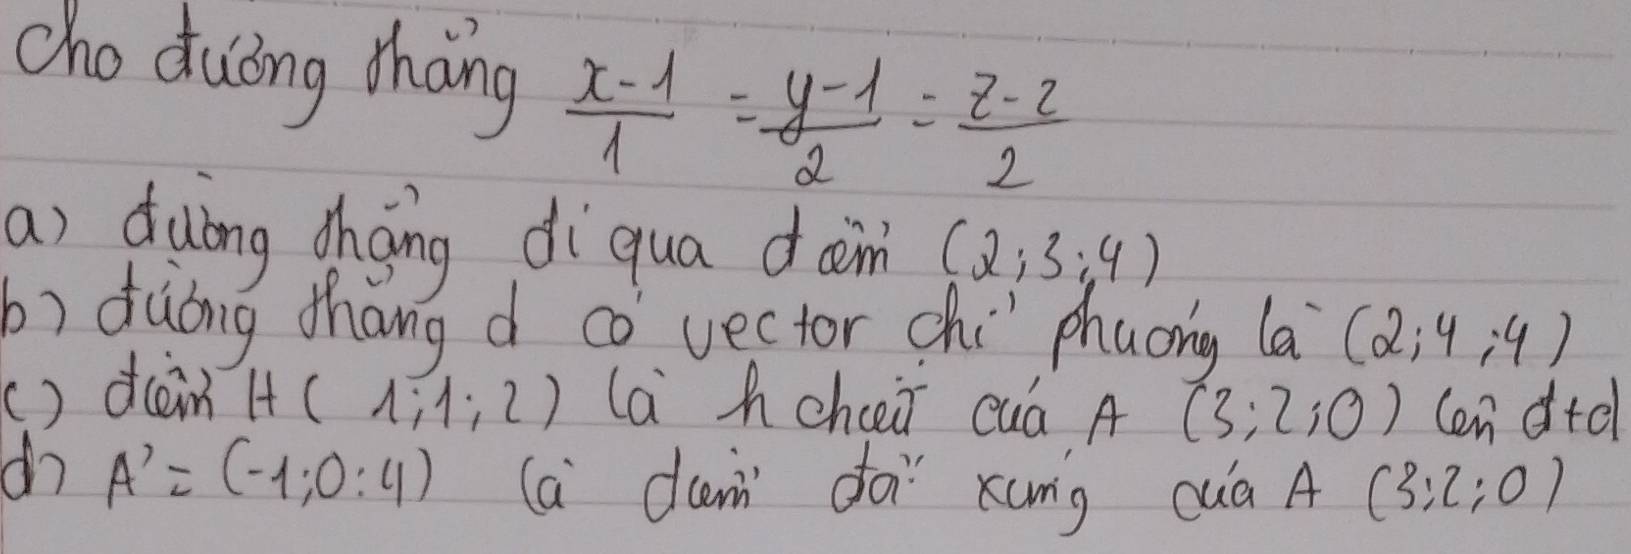 Cho đường thẳng \frac{x-1}{1} = \frac{y-1}{2} = \frac{z-2}{2}
a) đường thẳng đi qua điểm (2;3;4)
b) đường thẳng d có vector chỉ phương là (2;4;4)
c) điểm H(1;1;2) là h chiếu của A (3;2;0) lên đt d
d) A'=(-1;0:4) là điểm đối xứng của A (3;2;0)